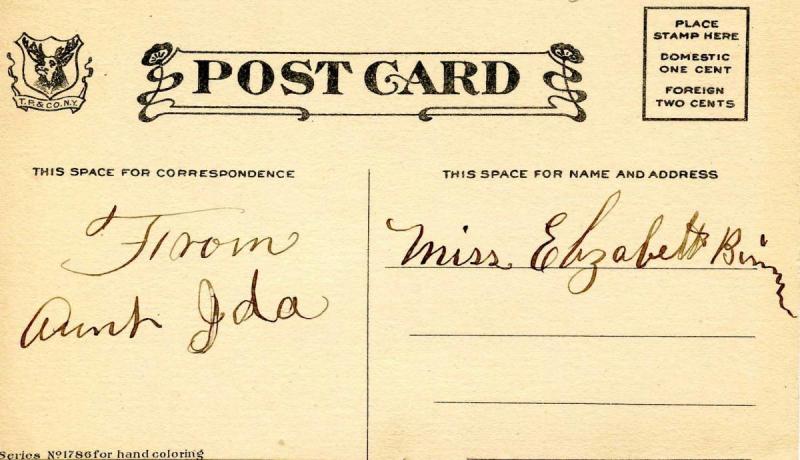 T.P. & CO. N.Y.
POST CARD
PLACE
STAMP HERE
DOMESTIC
ONE CENT
FOREIGN
TWO CENTS
THIS SPACE FOR CORRESPONDENCE
THIS SPACE FOR NAME AND ADDRESS
From
Aunt Ida
Miss Elizabeth
Series No 1786 for hand coloring